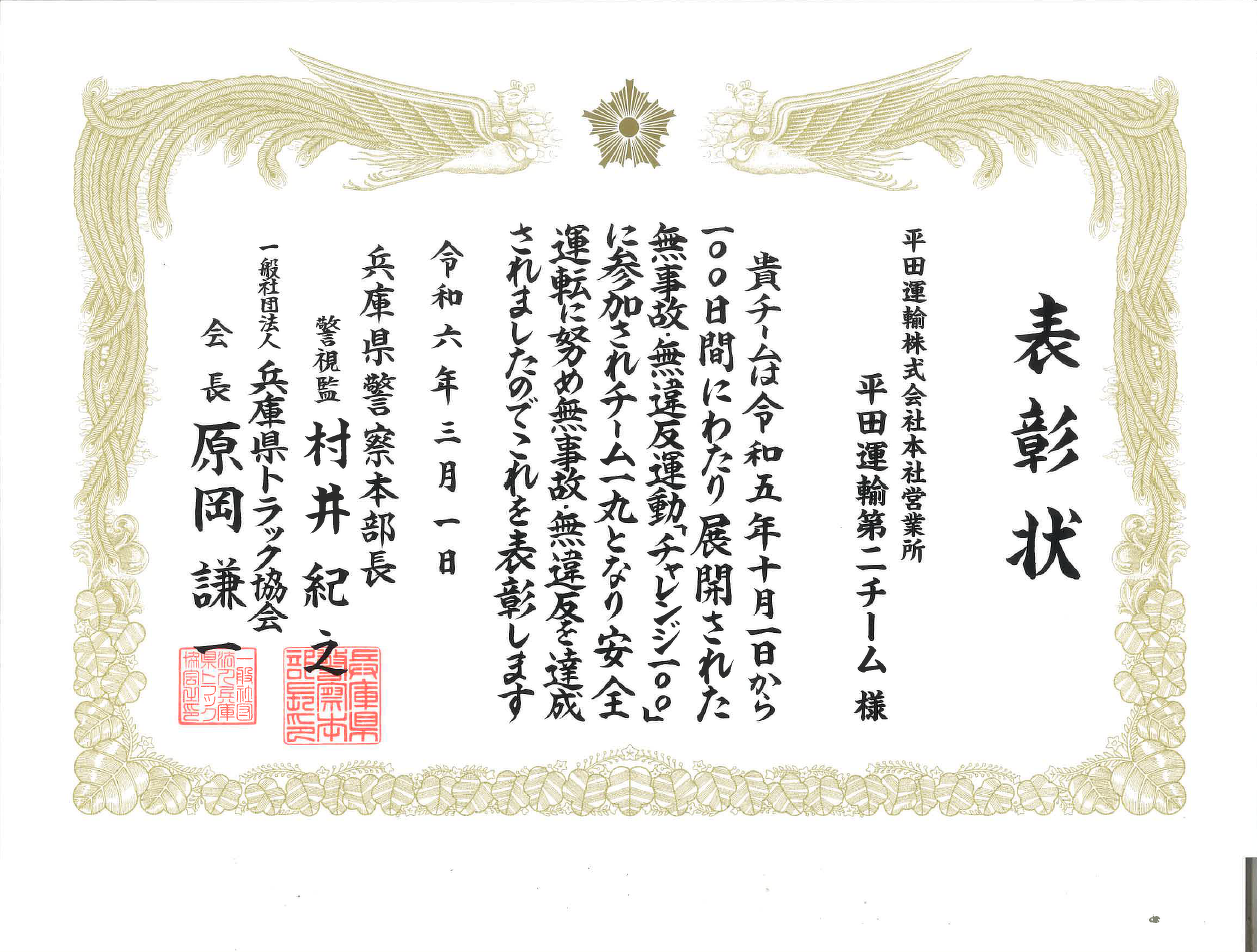 表彰状
平田運輸株式会社本社営業所
平田運輸第二チーム 様
貴チームは令和五年十月一日から
一〇〇日間にわたり展開された
無事故・無違反運動「チャレンジ一〇〇」
に参加されチーム一丸となり安全
運転に努め無事故・無違反を達成
されましたのでこれを表彰します
令和六年三月一日
兵庫県警察本部長
警視監 村井紀之
兵庫県警察本部長印
一般社団法人 兵庫県トラック協会
会長 原岡謙一
一般社団法人兵庫県トラック協会之印